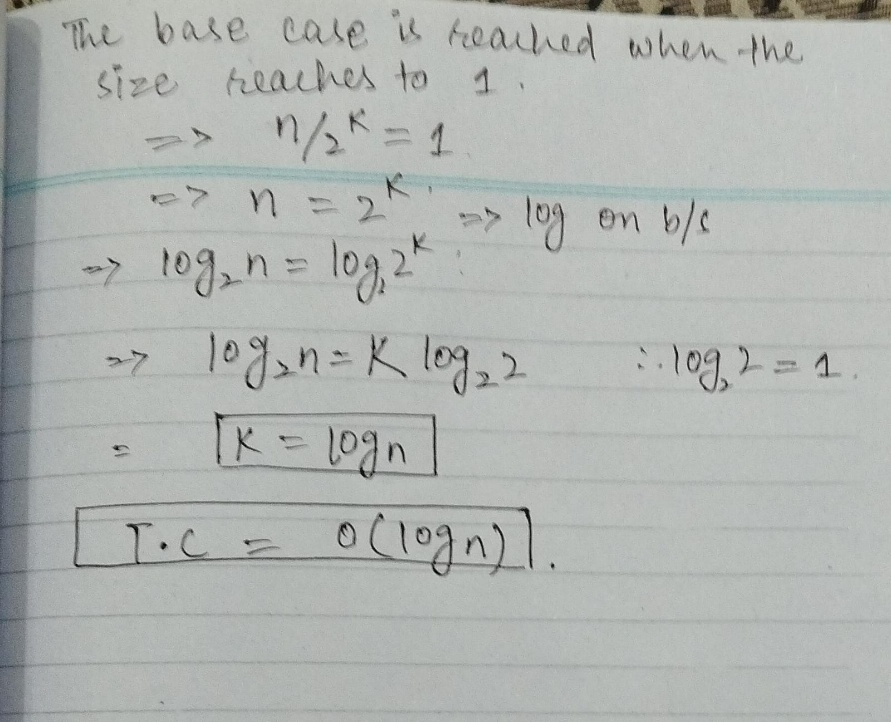 The base case is reached when the
size reaches to 1.
=> n/2^K = 1
=> n = 2^K. => log on b/s
=> log₂n = log₂2^K.
=> log₂n = K log₂2 ∴ log₂2 = 1.
= K = logn
T.C = O(logn).